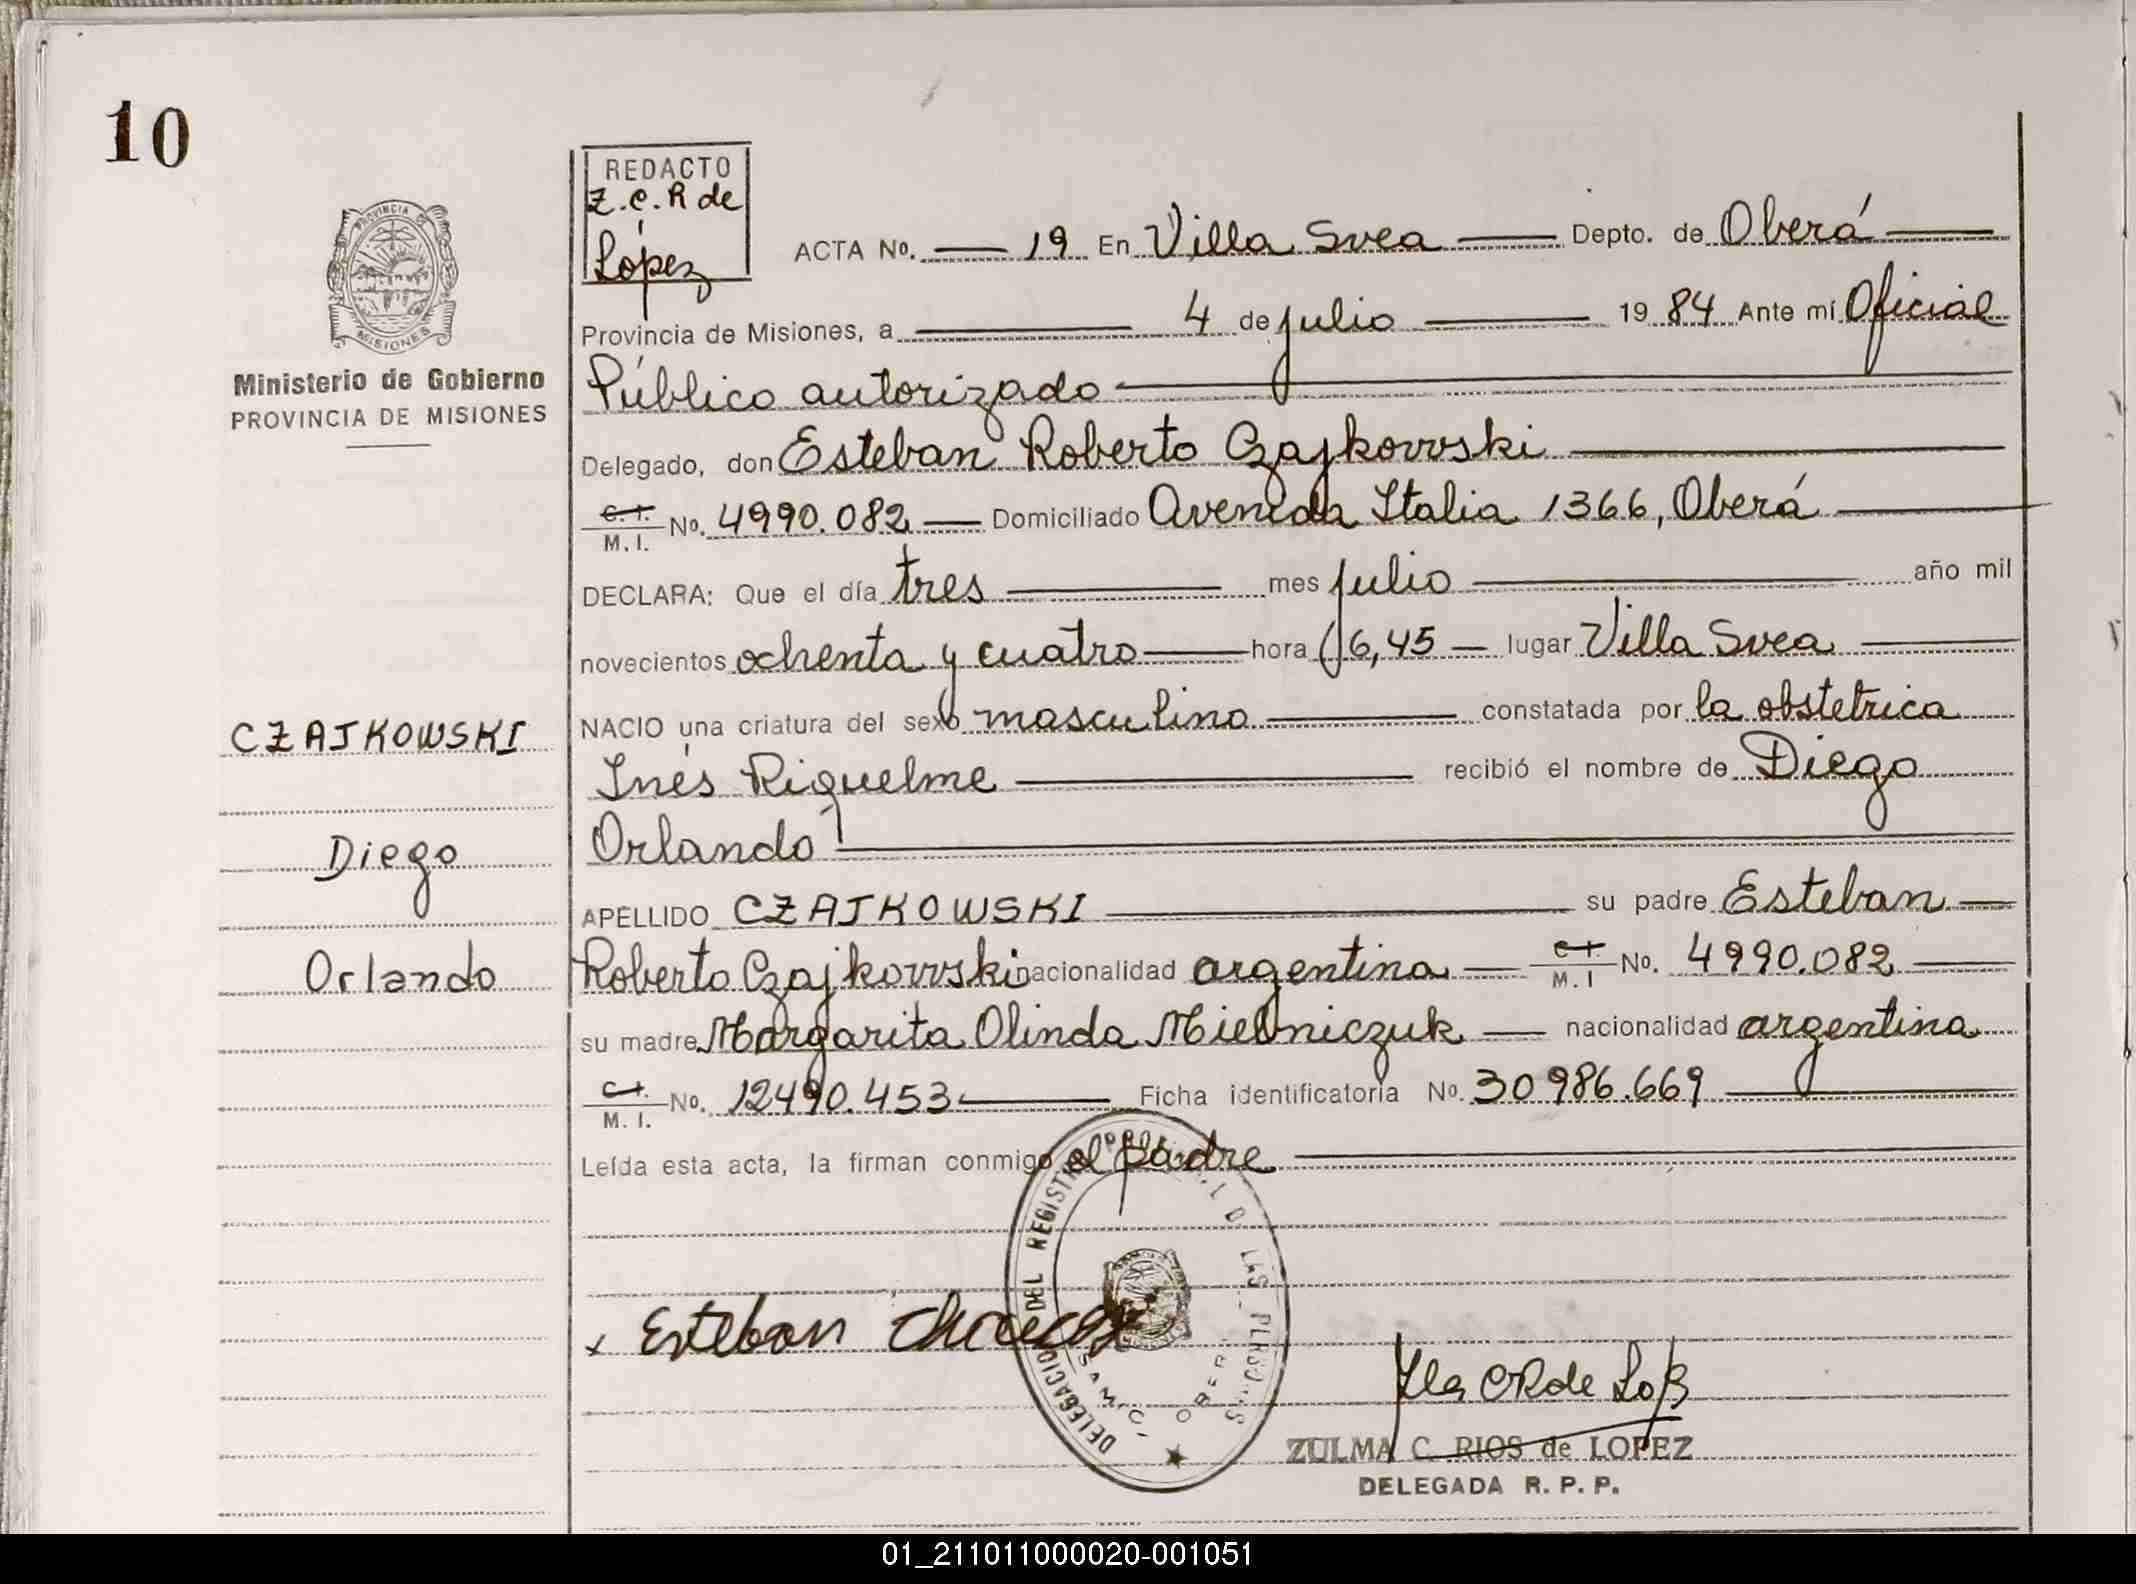 10
REDACTO
Z.C.R de
López
ACTA No. 19 En Villa Svea Depto. de Oberá
Provincia de Misiones, a 4 de julio 1984 Ante mí Oficial
Público autorizado
Delegado, don Esteban Roberto Czajkowski
C.I. M.I. No. 4990.082 Domiciliado Avenida Italia 1366, Oberá
DECLARA: Que el día tres mes julio año mil
novecientos ochenta y cuatro hora 6,45 lugar Villa Svea
NACIO una criatura del sexo masculino constatada por la obstetrica
Inés Riquelme recibió el nombre de Diego
Orlando
APELLIDO CZAJKOWSKI su padre Esteban
Roberto Czajkowski nacionalidad argentina C.I. M.I No. 4990.082
su madre Margarita Olinda Mielniczuk nacionalidad argentina
C.I. M.I. No. 12490.453 Ficha identificatoria No. 30986.669
Leída esta acta, la firman conmigo el padre
PROVINCIA DE
MISIONES
Ministerio de Gobierno
PROVINCIA DE MISIONES
CZAJKOWSKI
Diego
Orlando
DELEGACION DEL REGISTRO
LAS
SAMIC
x Esteban
ZULMA C. RIOS de LOPEZ
DELEGADA R. P. P.
01_211011000020-001051